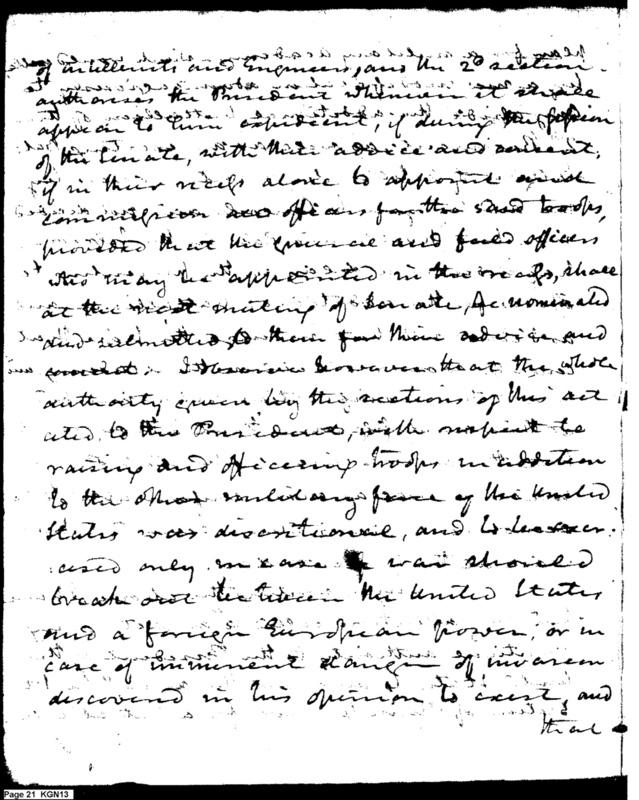 of artillerists and Engineers, and the 2d section
authorises the President whenever it shall
appear to him expedient, if during the session
of the Senate, with their advice and consent,
if in their recess alone to appoint and
commission officers for the said troops,
provided that the general and field officers
who may be appointed in the recess, shall
at the next meeting of Senate, be nominated
and submitted to them for their advice and
consent. I observe however that the whole
authority given by the sections of this act
cited to the President, with respect to
raising and officering troops in addition
to the other military force of the United
States was discretional, and to be exer-
cised only in case war should
break out between the United States
and a foreign European power, or in
case of imminent danger of invasion
discovered in his opinion to exist, and
that
Page 21 KGN13